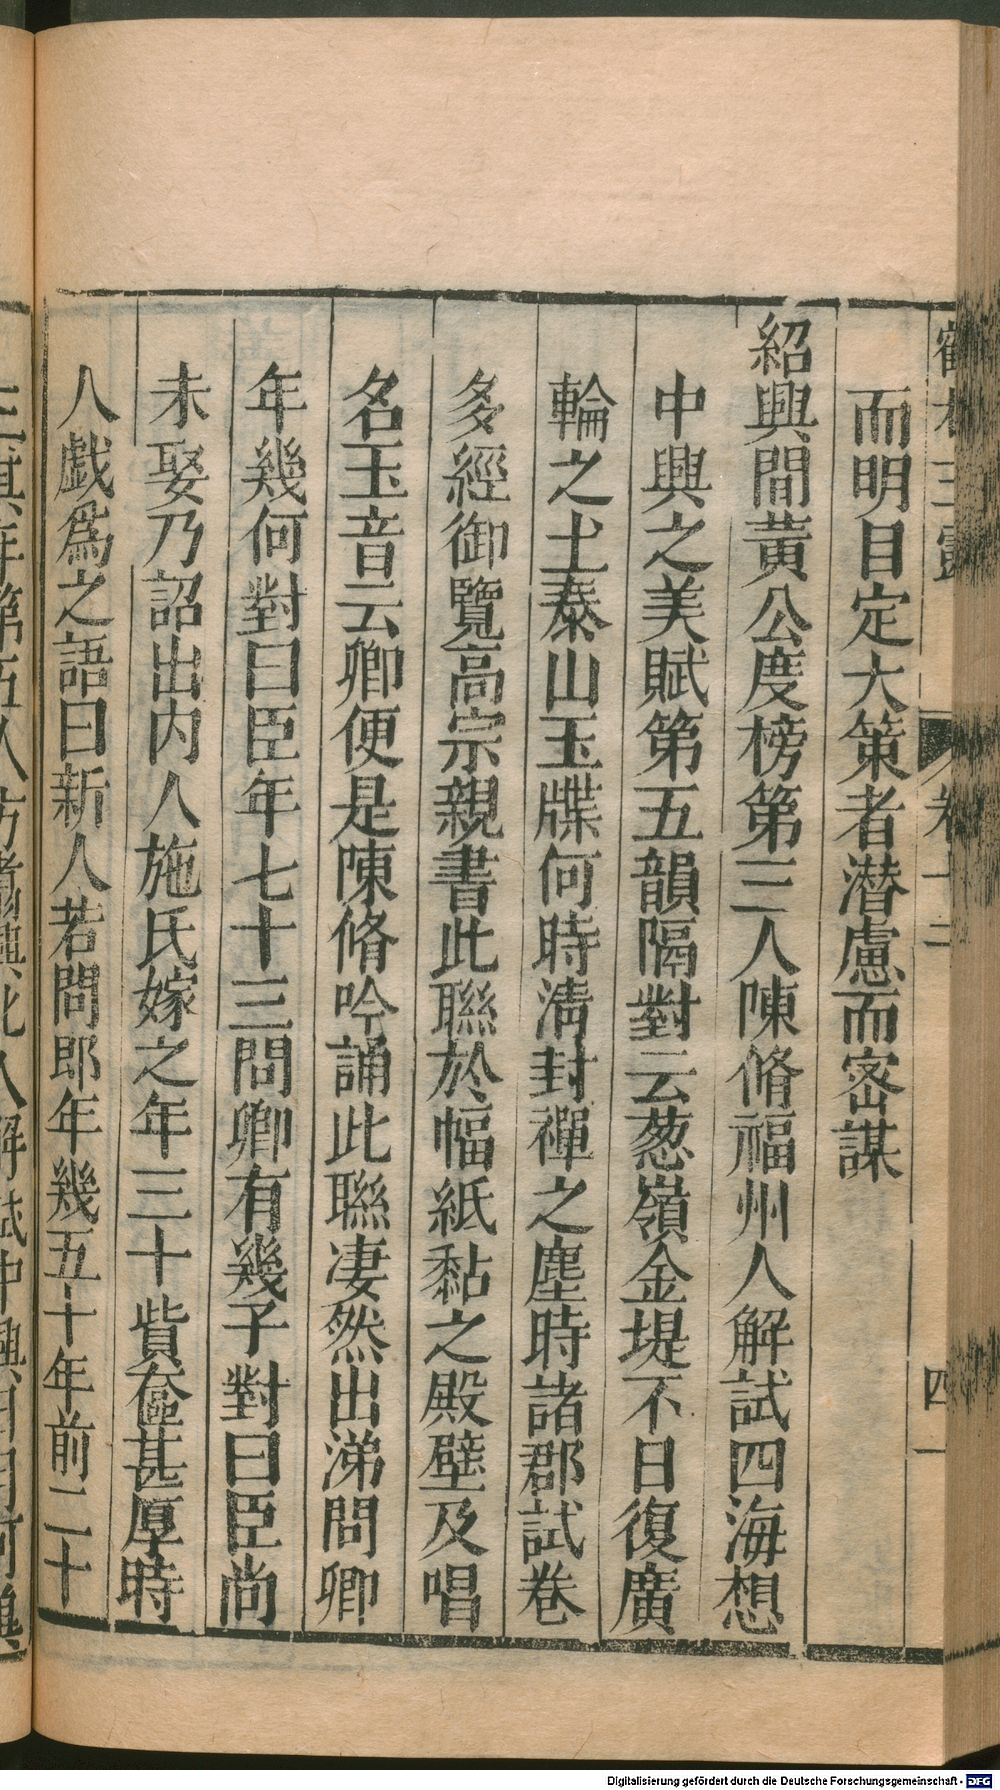 而明目定大策者潛慮而密謀
紹興間黃公度榜第三人陳脩福州人解試四海想
中興之美賦第五韻隔對云葱嶺金堤不日復廣
輪之土泰山玉牒何時清封禪之塵時諸郡試卷
多經御覽高宗親書此聯於幅紙黏之殿壁及唱
名玉音云卿便是陳脩吟誦此聯凄然出涕問卿
年幾何對曰臣年七十三問卿有幾子對曰臣尚
未娶乃詔出内人施氏嫁之年三十貲奩甚厚時
人戯爲之語曰新人若問郎年幾五十年前二十
Digitalisierung gefördert durch die Deutsche Forschungsgemeinschaft - DFG